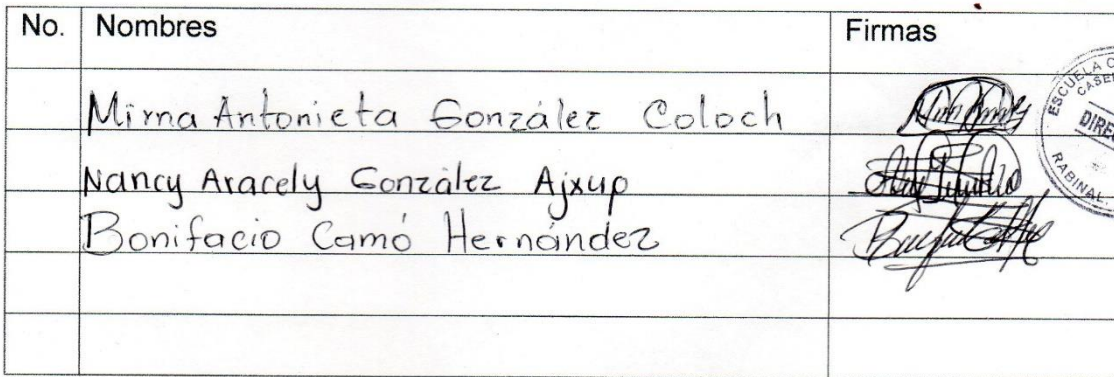 No. Nombres Firmas
Mirna Antonieta González Coloch
Nancy Aracely González Ajxup
Bonifacio Camó Hernández
ESCUELA
CASE
DIREC
RABINAL,